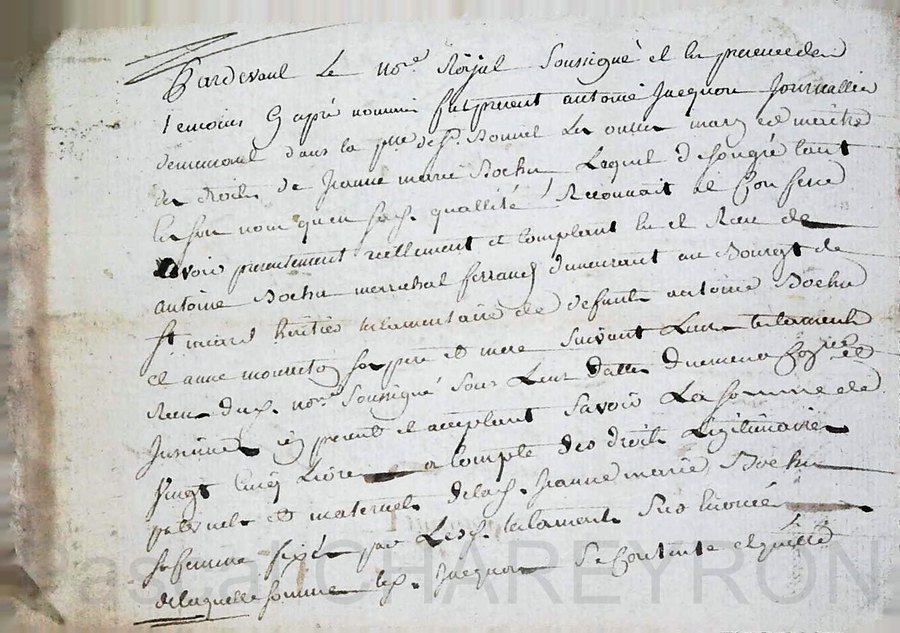 Pardevant Le no.re Royal Soussigné et les presence des
temoins cy apré nommé fut present antoine Jacquon Journallier
demeurant dans la p.sse de S.t Bonnet Les oulles mary et maitre
des droits de Jeanne marie Bochu Laquel de son gré tant
en son nom qu'en sad. quallité Reconnait et Confesse
avoir presentement reellement et comptant eu et Receu de
antoine Bochu marechal ferrand demeurant au Bourgt de
St heritier testamentaire de defunts antoine Bochu
et anne son pere et mere suivant Leurs testaments
Receu dud. no.re Soussigné sous Leurs dattes
present et acceptant Savoir La somme de
vingt cinq Livres a compte des droits Legitimaires
paternels et maternels de lad. Jeanne marie Bochu
sa femme fixés par Lesd. testaments Sus enoncé
de laquelle somme led. Jacquon Se contente et quitte
Pascal CHAREYRON